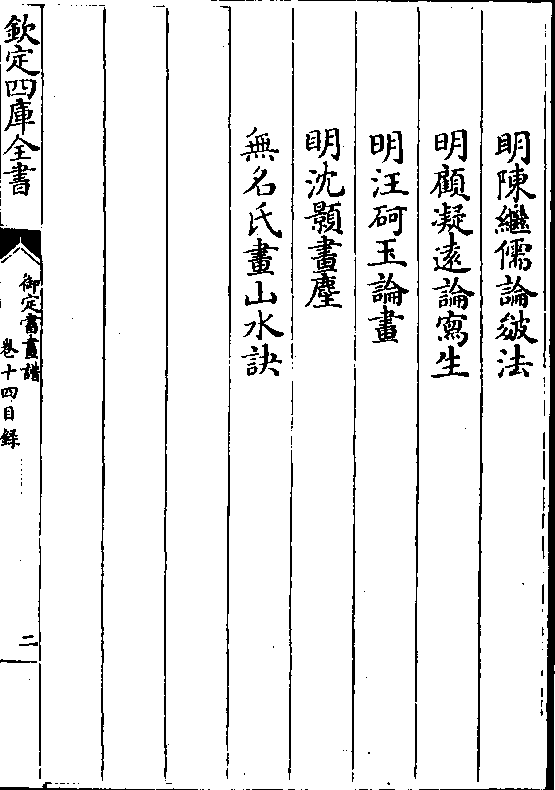 明陳繼儒論皴法
明顧凝遠論寫生
明汪砢玉論畫
明沈顥畫麈
無名氏畫山水訣
欽定四庫全書
御定書畫譜
卷十四目録
二